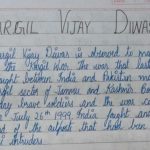 ARGIL VIJAY DIWAS
argil Vijay Diwas is observed to ma
the Kargil War. the war that last
ought between India and Pakistan in
gil sector of Jammu and Kashmir. On
day brave soldiers and the war co
July 26th 1999, India fought and
ed of the outpost that had been
intruders.